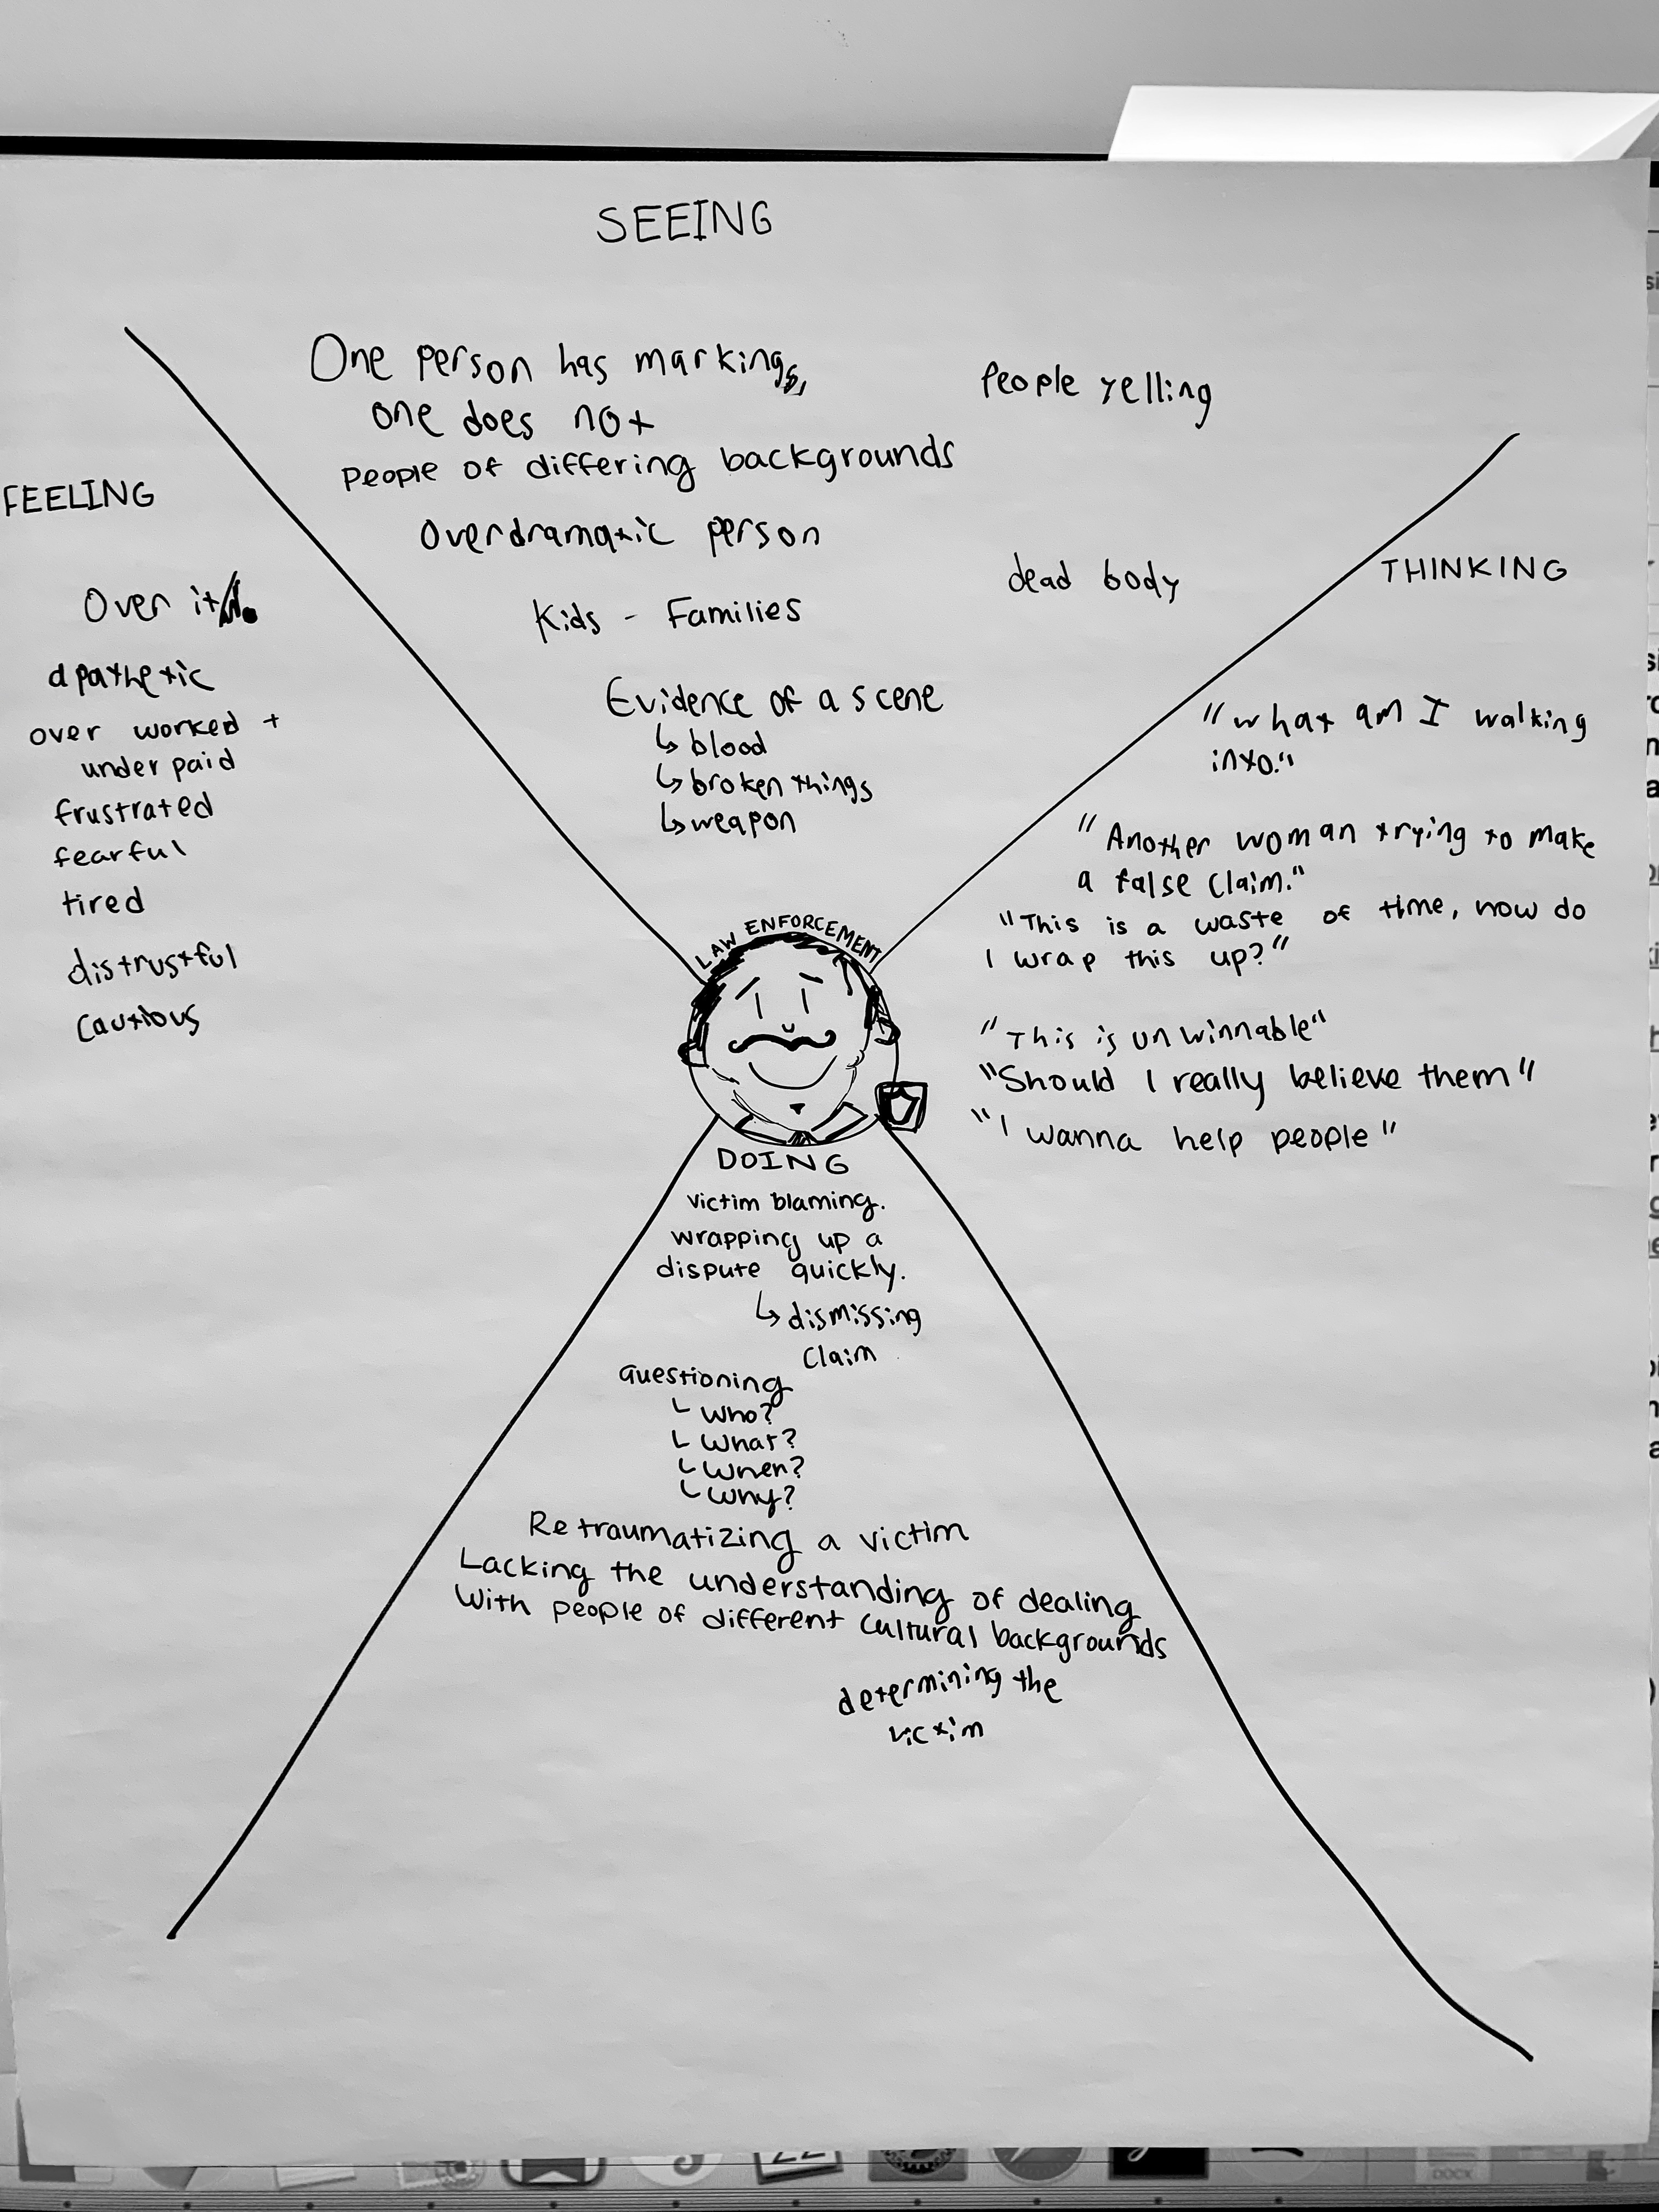 SEEING
One person has markings,
one does not
People of differing backgrounds
Overdramatic person
Kids - Families
Evidence of a scene
↳ blood
↳ broken things
↳ weapon
People yelling
dead body
FEELING
Over it
apathetic
over worked +
under paid
frustrated
fearful
tired
distrustful
Cautious
THINKING
"what am I walking
into."
"Another woman trying to make
a false claim."
"This is a waste of time, how do
I wrap this up?"
"This is unwinnable"
"Should I really believe them"
"I wanna help people"
LAW ENFORCEMENT
DOING
victim blaming.
wrapping up a
dispute quickly.
↳ dismissing
claim
questioning
└ who?
└ what?
└ when?
└ why?
Retraumatizing a victim
Lacking the understanding of dealing
With people of different cultural backgrounds
determining the
victim
DOCX